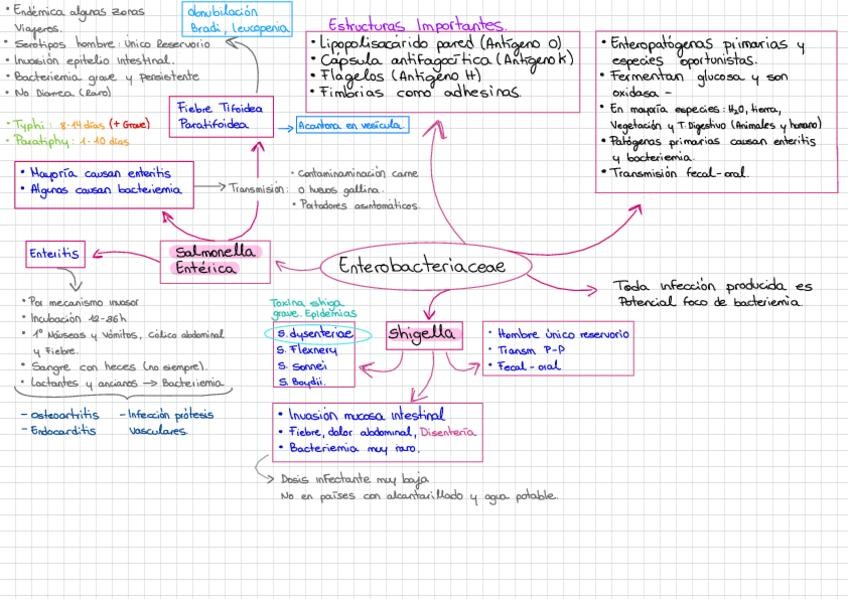 • Endémica algunas zonas
Viajeros.
• Serotipos hombre: Único Reservorio
• Invasión epitelio intestinal.
• Bacteriemia grave y persistente
• No Diarrea (Raro)
• Typhi: 8-14 días (+ Grave)
• Paratiphy: 1-10 días
obnubilación
Bradi, leucopenia
Fiebre Tifoidea
Paratifoidea
Acantona en vesícula.
Estructuras Importantes.
• Lipopolisacárido pared (Antígeno O)
• Cápsula antifagocítica (Antígeno K)
• Flagelos (Antígeno H)
• Fimbrias como adhesinas.
• Enteropatógenas primarias y
especies oportunistas.
• Fermentan glucosa y son
oxidasa -
• En mayoría especies: H2O, tierra,
Vegetación y T. Digestivo (Animales y humano)
• Patógenas primarias causan enteritis
y bacteriemia.
• Transmisión fecal-oral.
• Mayoría causan enteritis
• Algunas causan bacteriemia
Transmisión:
• Contaminaminación carne
o huevos gallina.
• Portadores asintomáticos.
Enteritis
Salmonella
Entérica
Enterobacteriaceae
Toda infección producida es
Potencial foco de bacteriemia
• Por mecanismo invasor
• Incubación 12-36h
• 1º Náuseas y Vómitos, Cólico abdominal
y Fiebre.
• Sangre con heces (no siempre).
• Lactantes y ancianos → Bacteriemia
- Osteoartritis
- Endocarditis
- Infección prótesis
Vasculares.
Toxina shiga
grave. Epidemias
S. dysenteriae
S. Flexnery
S. Sonnei
S. Boydii.
Shigella
• Hombre único reservorio
• Transm P-P
• Fecal-oral
• Invasión mucosa intestinal
• Fiebre, dolor abdominal, Disentería
• Bacteriemia muy raro.
Dosis infectante muy baja
No en países con alcantarillado y agua potable.